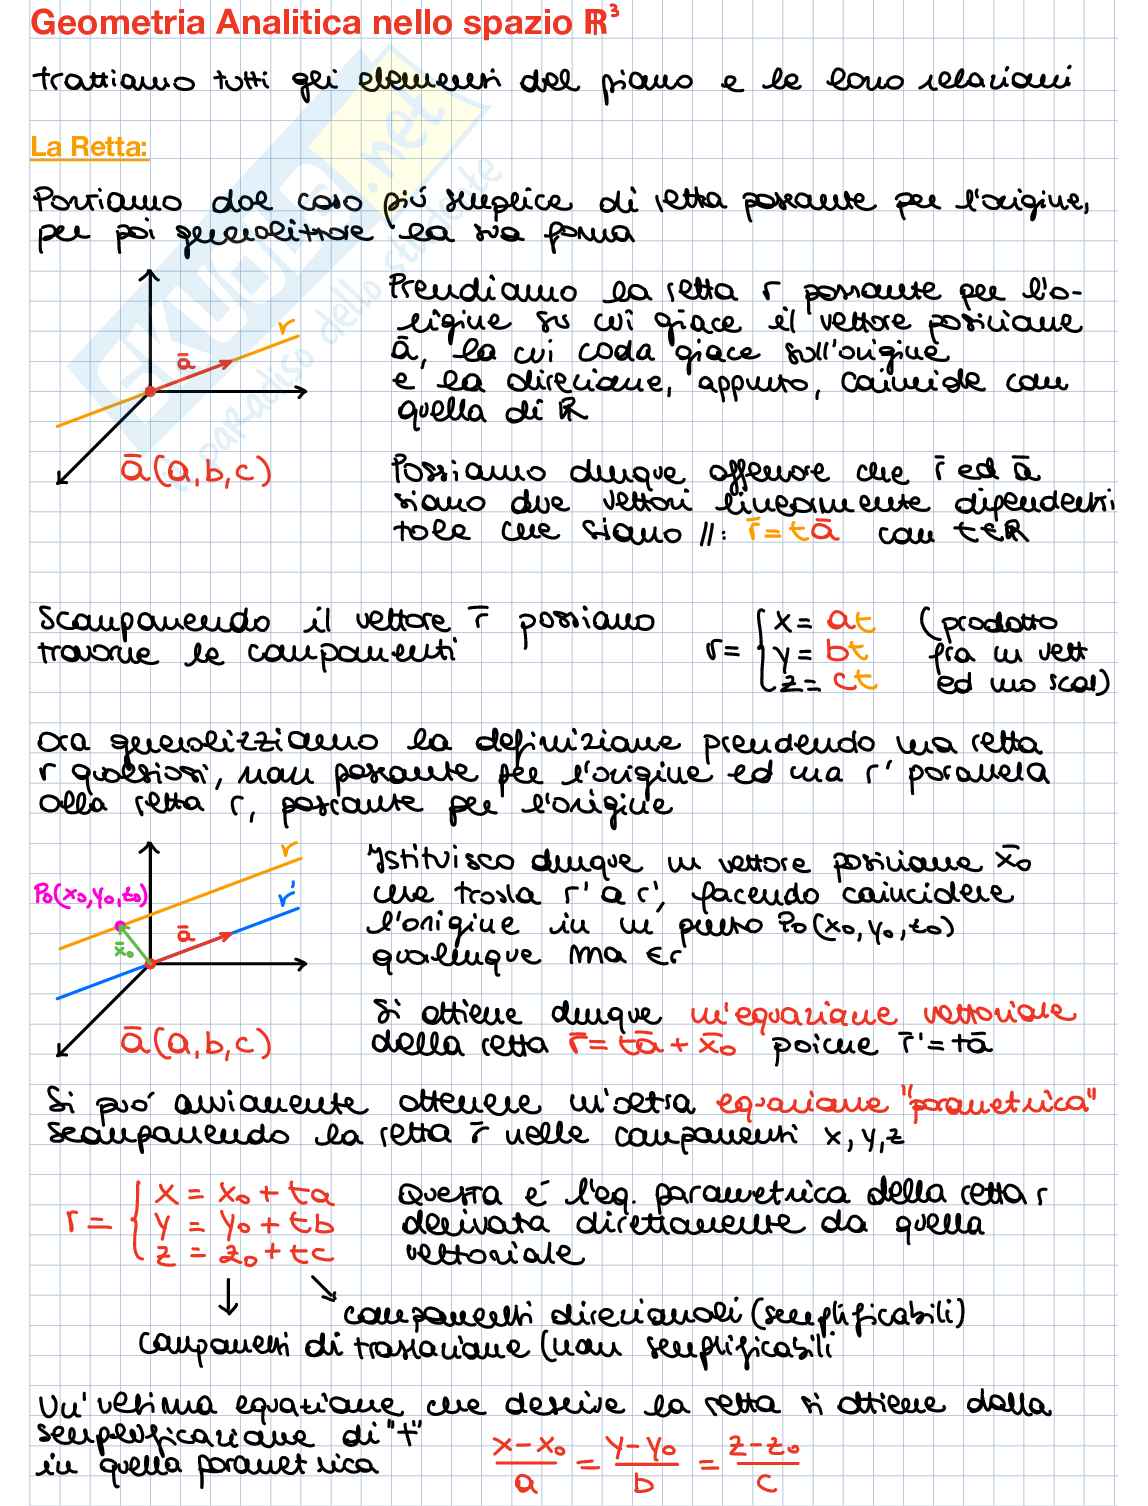 Geometria Analitica nello spazio ℝ³
trattiamo tutti gli elementi del piano e le loro relazioni
La Retta:
Partiamo dal caso più semplice di retta passante per l'origine,
per poi generalizzare la sua forma
Prendiamo la retta r passante per l'o-
rigine su cui giace il vettore posizione
ā, la cui coda giace sull'origine
e la direzione, appunto, coincide con
quella di R
r
ā
ā(a,b,c)
Possiamo dunque affermare che r̄ ed ā
siano due vettori linearmente dipendenti
tale che siano //: r̄=tā con t∈ℝ
Scomponendo il vettore r̄ possiamo
trovarne le componenti
r= { x= at (prodotto
y= bt fra un vett
z= ct ed uno scal)
Ora generalizziamo la definizione prendendo una retta
r qualsiasi, non passante per l'origine ed una r' parallela
alla retta r, passante per l'origine
r
P₀(x₀,y₀,z₀)
r'
ā
x̄₀
ā(a,b,c)
Istituisco dunque un vettore posizione x̄₀
che trasla r' a r', facendo coincidere
l'origine in un punto P₀(x₀,y₀,z₀)
qualunque ma ∈r
Si ottiene dunque un'equazione vettoriale
della retta r̄= tā + x̄₀ poiché r̄'= tā
Si può ovviamente ottenere un'altra equazione "parametrica"
scomponendo la retta r̄ nelle componenti x,y,z
r= { x = x₀ + ta
y = y₀ + tb
z = z₀ + tc
Questa é l'eq. parametrica della retta r
derivata direttamente da quella
vettoriale
componenti direzionali (semplificabili)
componenti di traslazione (non semplificabili
Un'ultima equazione che descrive la retta si ottiene dalla
semplificazione di "t"
in quella parametrica
x-x₀/a = y-y₀/b = z-z₀/c
SKUOLA.net
il paradiso dello studente